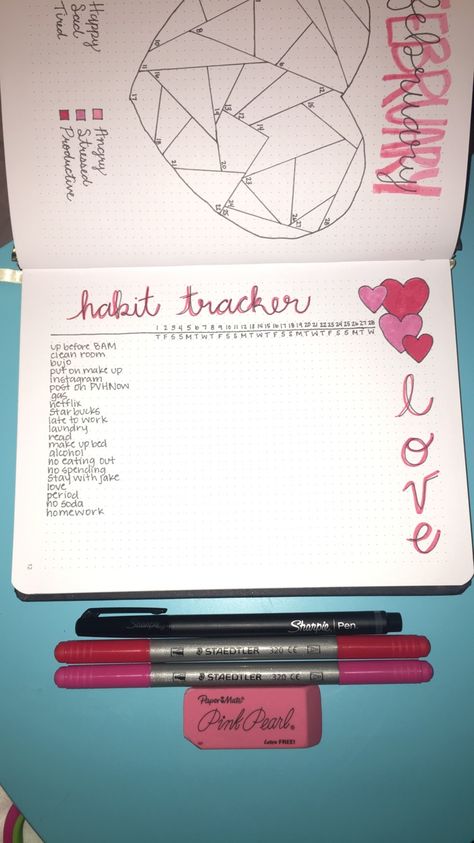 Happy
Sad
Tired
Angry
Stressed
Productive
FEBRUARY
february
habit tracker
1 2 3 4 5 6 7 8 9 10 11 12 13 14 15 16 17 18 19 20 21 22 23 24 25 26 27 28
T F S S M T W T F S S M T W T F S S M T W T F S S M T W
up before 8AM
clean room
bujo
put on make up
instagram
post on PVHNow
gas
netflix
starbucks
late to work
laundry
read
make up bed
alcohol
no eating out
no spending
stay with jake
love
period
no soda
homework
love
Sharpie | Pen.
STAEDTLER 320 CE
STAEDTLER 320 CE
Paper Mate®
Pink Pearl®
Latex FREE!